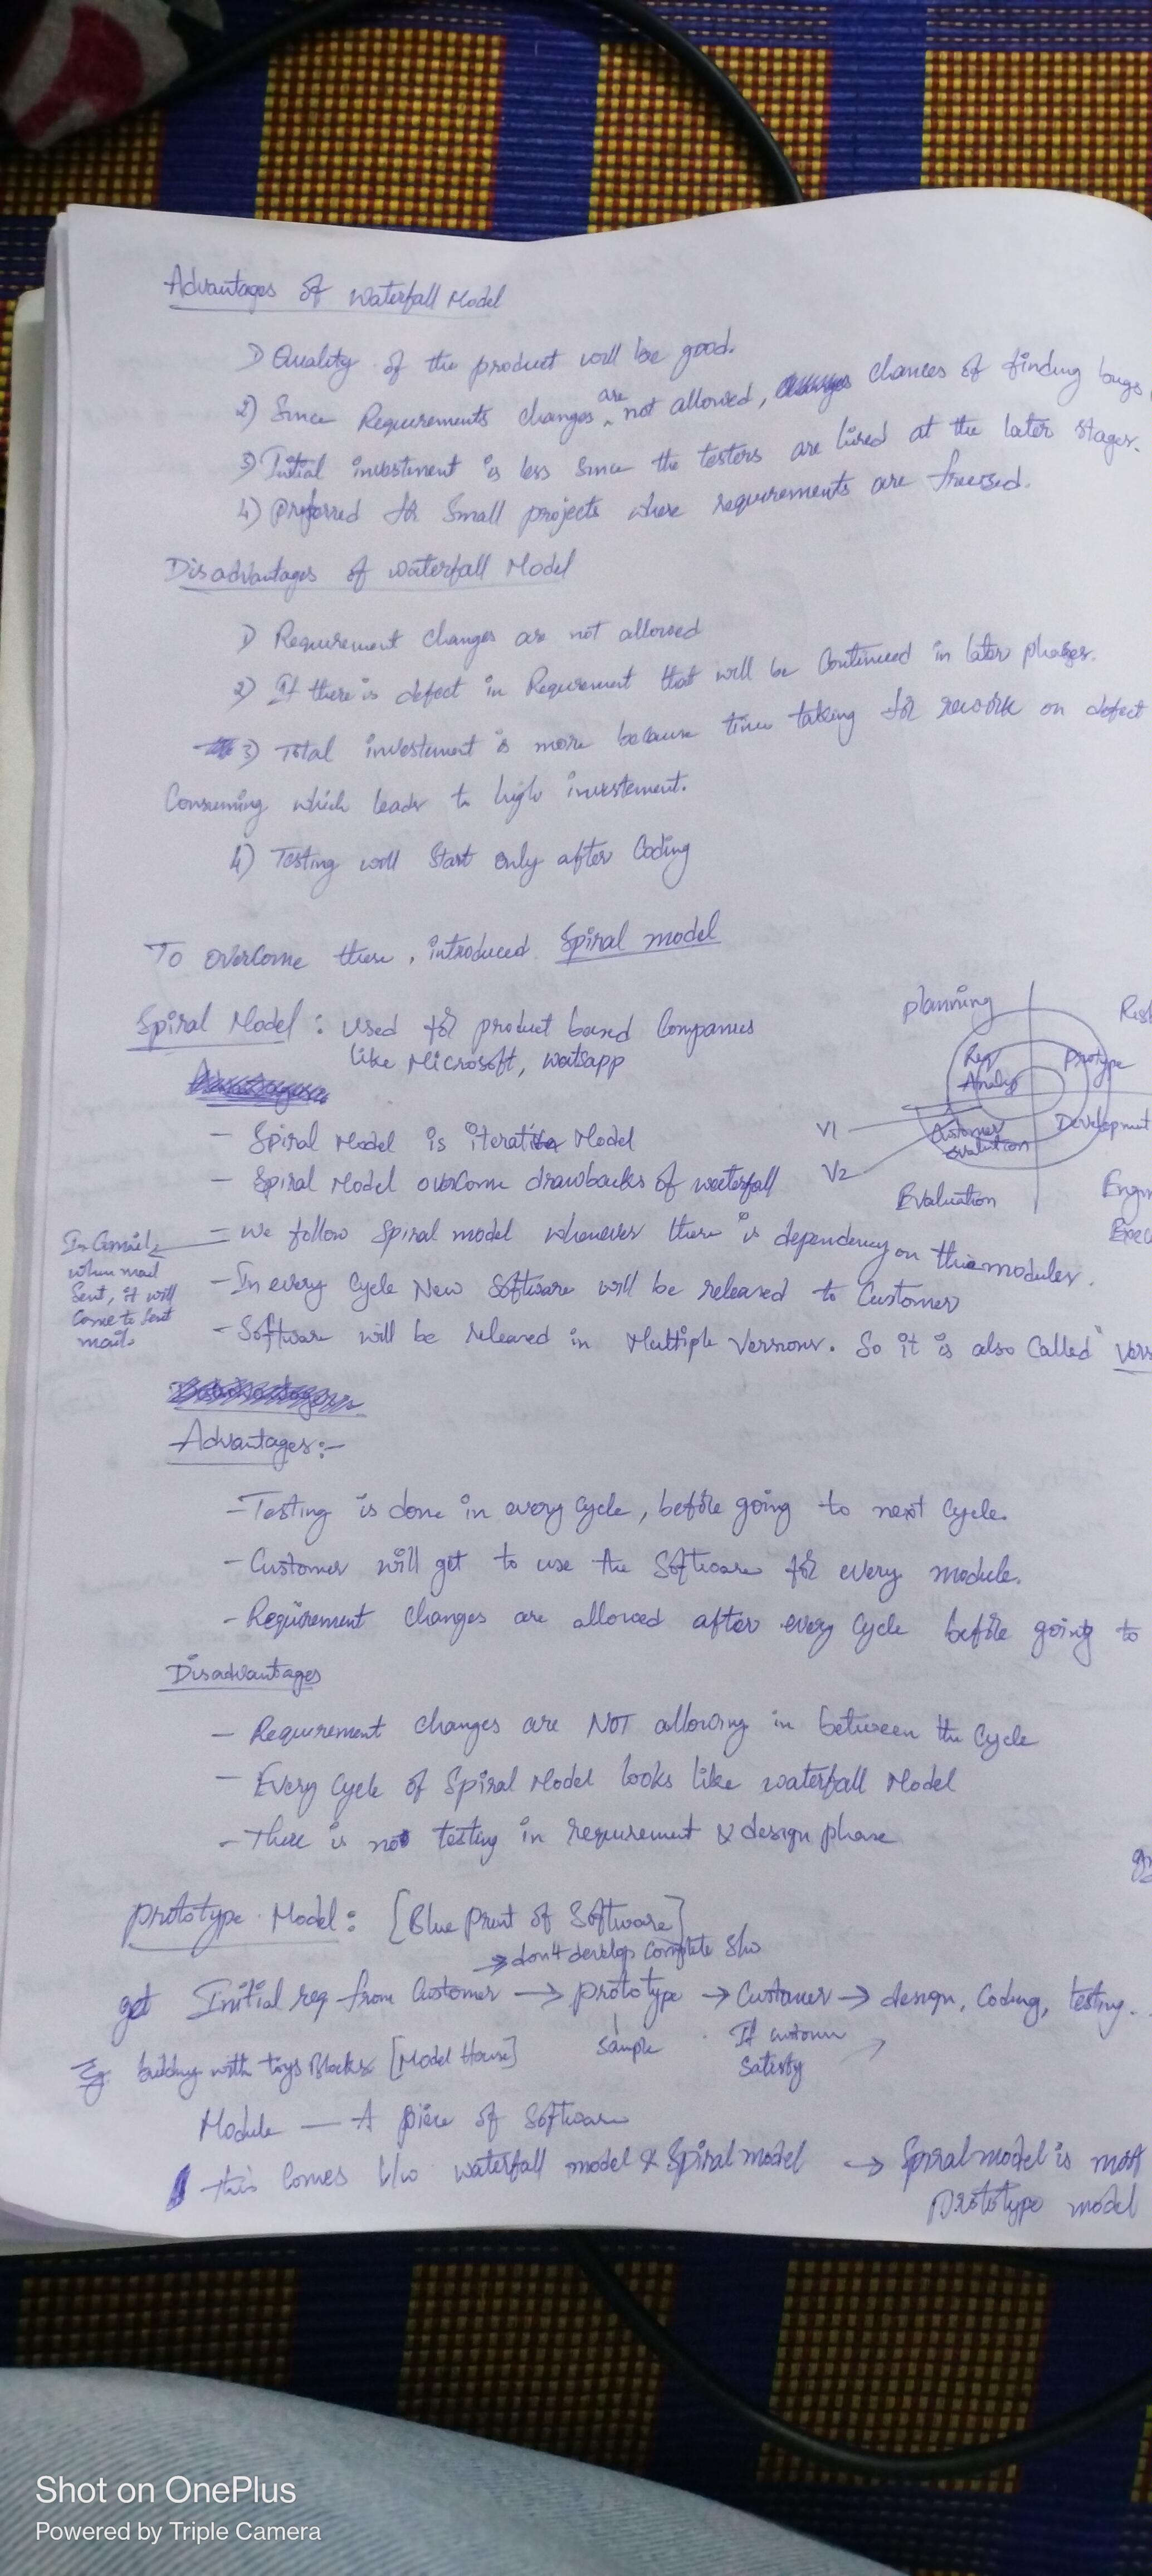 Advantages of Waterfall Model
1) Quality of the product will be good.
2) Since Requirements changes are not allowed, chances of finding bugs
3) Initial investment is less Since the testers are hired at the later stages.
4) Preferred for Small projects where requirements are freezed.
Disadvantages of waterfall Model
1) Requirement changes are not allowed
2) If there is defect in Requirement that will be Continued in later phases.
3) Total investement is more because time taking for rework on defect
Consuming which leads to high investement.
4) Testing will Start only after Coding
To overcome these, introduced Spiral model
Spiral Model : Used for product based Companies
like Microsoft, watsapp
planning
Req Analys
Protype
Customer evalution
Development
V1
V2
Evaluation
- Spiral Model is iterative Model
- Spiral Model overcome drawbacks of waterfall
- we follow Spiral model whenever there is dependency on the modules.
In Gmail,
when mail
Sent, it will
Come to Sent
mail.
- In every Cycle New Software will be released to Customer
- Software will be released in Multiple Versions. So it is also Called "
Advantages:-
- Testing is done in every Cycle, before going to next Cycle.
- Customer will get to use the Software for every module.
- Requirement changes are allowed after every Cycle before going to
Disadvantages
- Requirement changes are NOT allowing in between the Cycle
- Every Cycle of Spiral Model looks like waterfall Model
- There is not testing in requirement & design phase
Prototype Model: [Blue Print of Software]
→ don't develop Complete S/w
get Initial req from Customer → prototype → Customer → design, Coding, testing..
sample
If custom
Satisfy
Eg building with toys Blocks [Model House]
Module — A piece of Software
- this Comes b/w waterfall model & Spiral model → Spiral model is
Prototype model
Shot on OnePlus
Powered by Triple Camera